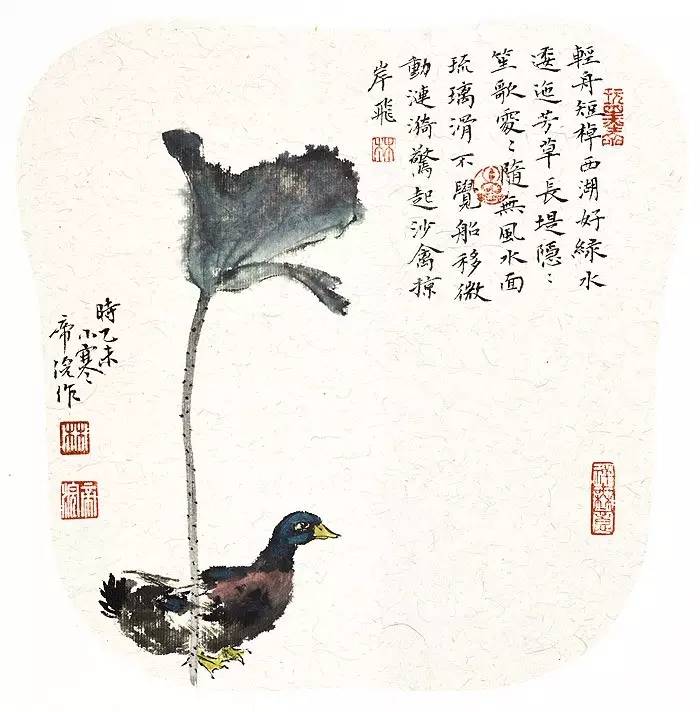 輕舟短棹西湖好綠水
逶迤芳草長堤隱〻
笙歌處〻隨無風水面
琉璃滑不覺船移微
動漣漪驚起沙禽掠
岸飛
林
時乙未
小寒
帝浣作
林
帝浣